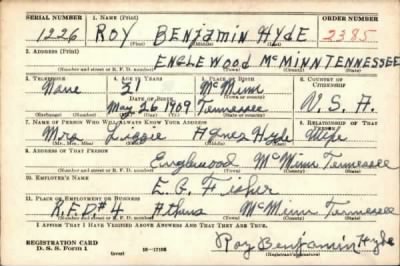 SERIAL NUMBER 1. NAME (Print) ORDER NUMBER
1226 ROY BENJAMIN HYDE 2385
(First) (Middle) (Last)
2. ADDRESS (Print)
ENGLEWOOD McMINN TENNESSEE
(Number and street or R. F. D. number) (Town) (County) (State)
3. TELEPHONE 4. AGE IN YEARS 5. PLACE OF BIRTH 6. COUNTRY OF CITIZENSHIP
None 31 McMinn
DATE OF BIRTH (Town or county)
May 26 1909 Tennessee U.S.A.
(Exchange) (Number) (Mo.) (Day) (Yr.) (State or country)
7. NAME OF PERSON WHO WILL ALWAYS KNOW YOUR ADDRESS 8. RELATIONSHIP OF THAT PERSON
Mrs Lizzie Agnes Hyde Wife
(Mr., Mrs., Miss) (First) (Middle) (Last)
9. ADDRESS OF THAT PERSON
Englewood McMinn Tennessee
(Number and street or R. F. D. number) (Town) (County) (State)
10. EMPLOYER'S NAME
E. G. Fisher
11. PLACE OF EMPLOYMENT OR BUSINESS
R.F.D #4 Athens McMinn Tennessee
(Number and street or R. F. D. number) (Town) (County) (State)
I AFFIRM THAT I HAVE VERIFIED ABOVE ANSWERS AND THAT THEY ARE TRUE.
REGISTRATION CARD
D. S. S. Form 1 (over) Roy Benjamin Hyde